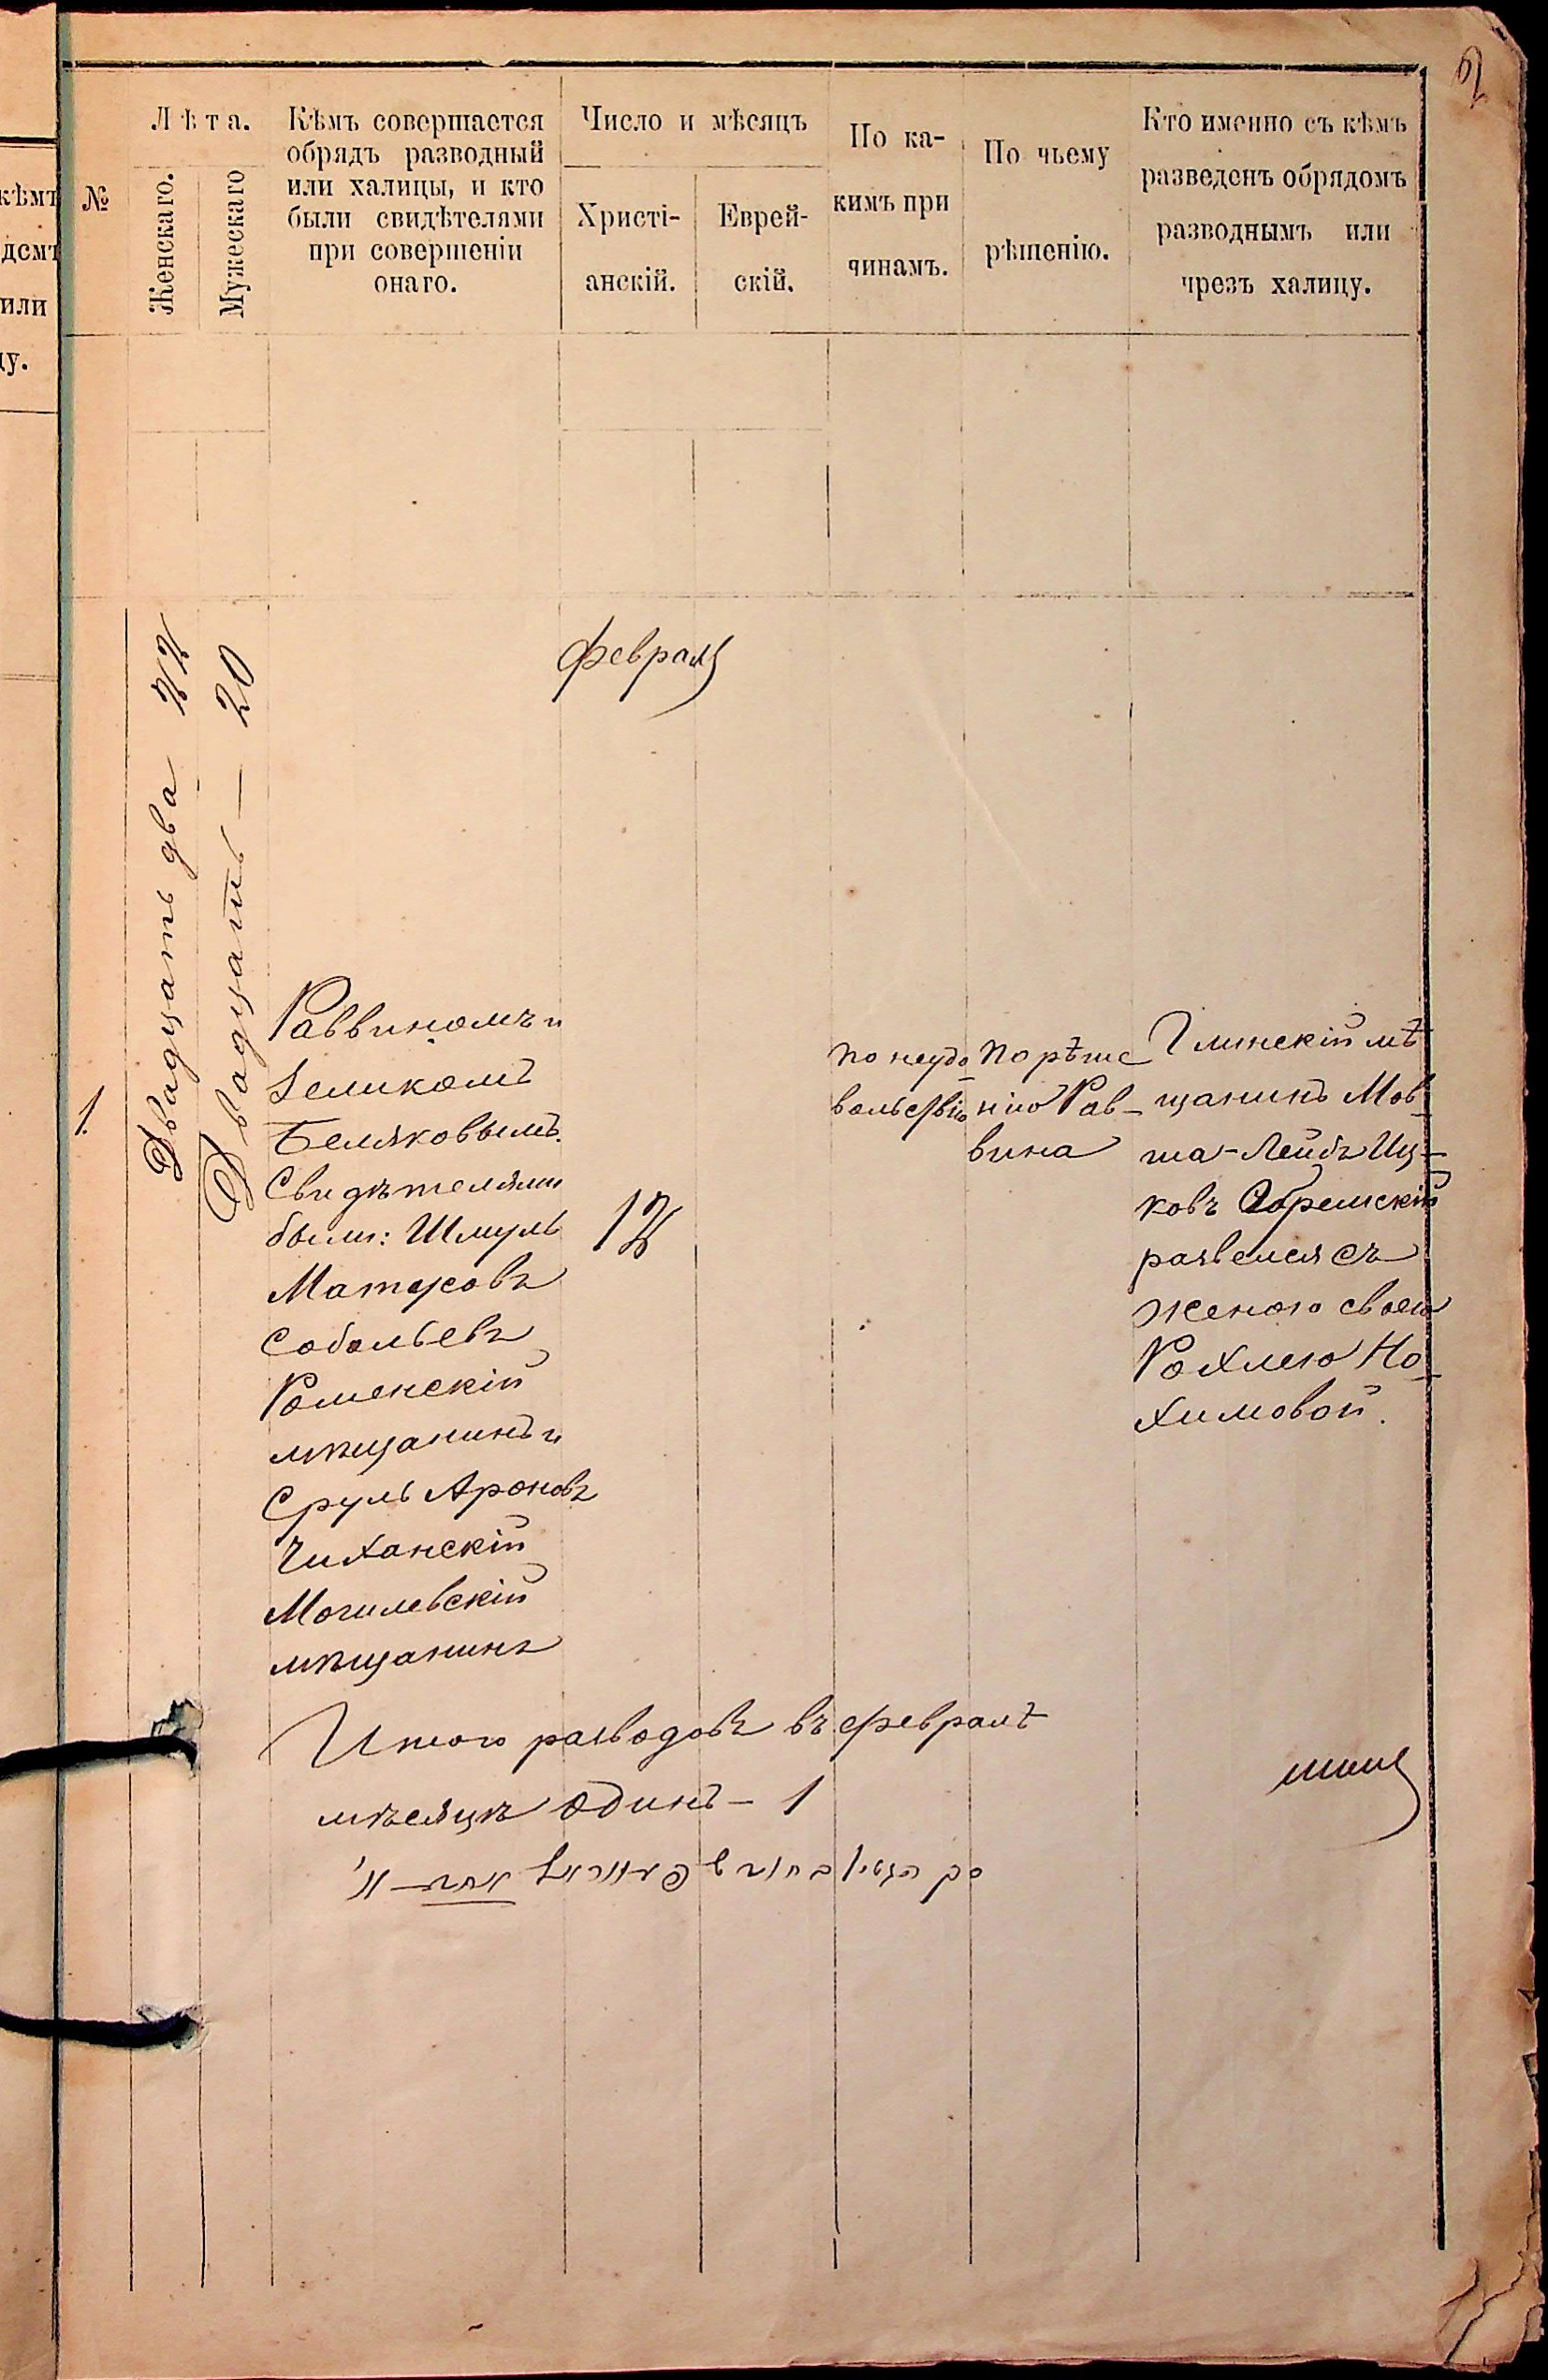 62
кѣмъ
домъ
или
цу.
№
Лѣта.
Женскаго.
Мужескаго
Кѣмъ совершается
обрядъ разводный
или халицы, и кто
были свидѣтелями
при совершеніи
онаго.
Число и мѣсяцъ
Христі-
анскій.
Еврей-
скій.
По ка-
кимъ при
чинамъ.
По чьему
рѣшенію.
Кто именно съ кѣмъ
разведенъ обрядомъ
разводнымъ или
чрезъ халицу.
февраля
1.
Двадцать два 22
Двадцать — 20
Раввиномъ и
Зеликомъ
Беляковымъ.
Свидѣтелями
были: Шмуль
Матусовъ
Собольевъ
Роменскій
мѣщанинъ и
Сруль Ароновъ
Чиханскій
Могилевскій
мѣщанинъ
12
по неудо
вольствію
по рѣше
нію Рав-
вина
Глинскій мѣ
щанинъ Мов
ша-Лейбъ Иц-
ковъ
развелся съ
женою своею
Рохлею Но
химовой.
Итого разводовъ въ февралѣ
мѣсяцѣ одинъ - 1